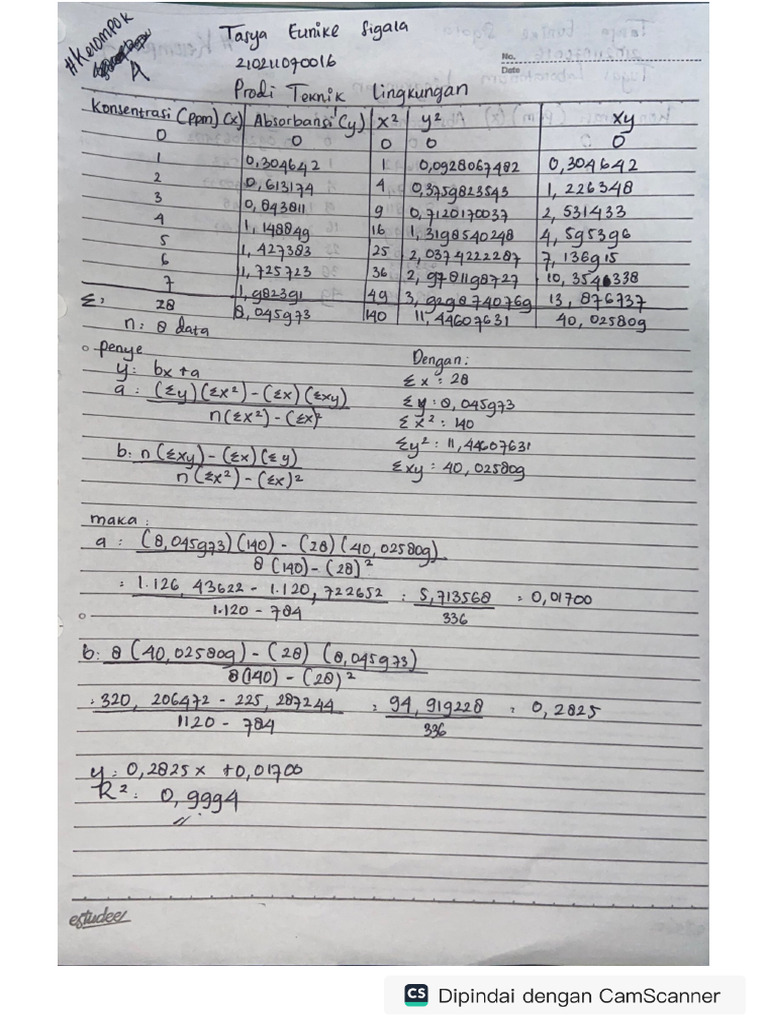 #Kelompok
A
Tasya Eunike Sigala
210211070016
Prodi Teknik Lingkungan
No.
Date
Konsentrasi (Ppm) (x) Absorbansi (y) x² y² xy
0 0 0 0 0
1 0,304642 1 0,0928067482 0,304642
2 0,613174 4 0,3759823543 1,226348
3 0,843811 9 0,7120170037 2,531433
4 1,148849 16 1,3198540248 4,595396
5 1,427383 25 2,0374222287 7,136915
6 1,725723 36 2,9781198727 10,3546338
7 1,982391 49 3,9298740769 13,876737
Σ: 28 8,045973 140 11,44607631 40,025809
n: 8 data
Penye
y: bx + a
a: (Σy)(Σx²) - (Σx)(Σxy)
n(Σx²) - (Σx)²
b: n(Σxy) - (Σx)(Σy)
n(Σx²) - (Σx)²
Dengan:
Σx : 28
Σy : 8,045973
Σx² : 140
Σy² : 11,44607631
Σxy : 40,025809
maka :
a : (8,045973)(140) - (28)(40,025809)
8(140) - (28)²
: 1.126,43622 - 1.120,722652 : 5,713568 : 0,01700
1.120 - 784 336
b: 8(40,025809) - (28)(8,045973)
8(140) - (28)²
: 320,206472 - 225,287244 : 94,919228 : 0,2825
1120 - 784 336
y: 0,2825x + 0,01700
R²: 0,9994
estudee
CS Dipindai dengan CamScanner